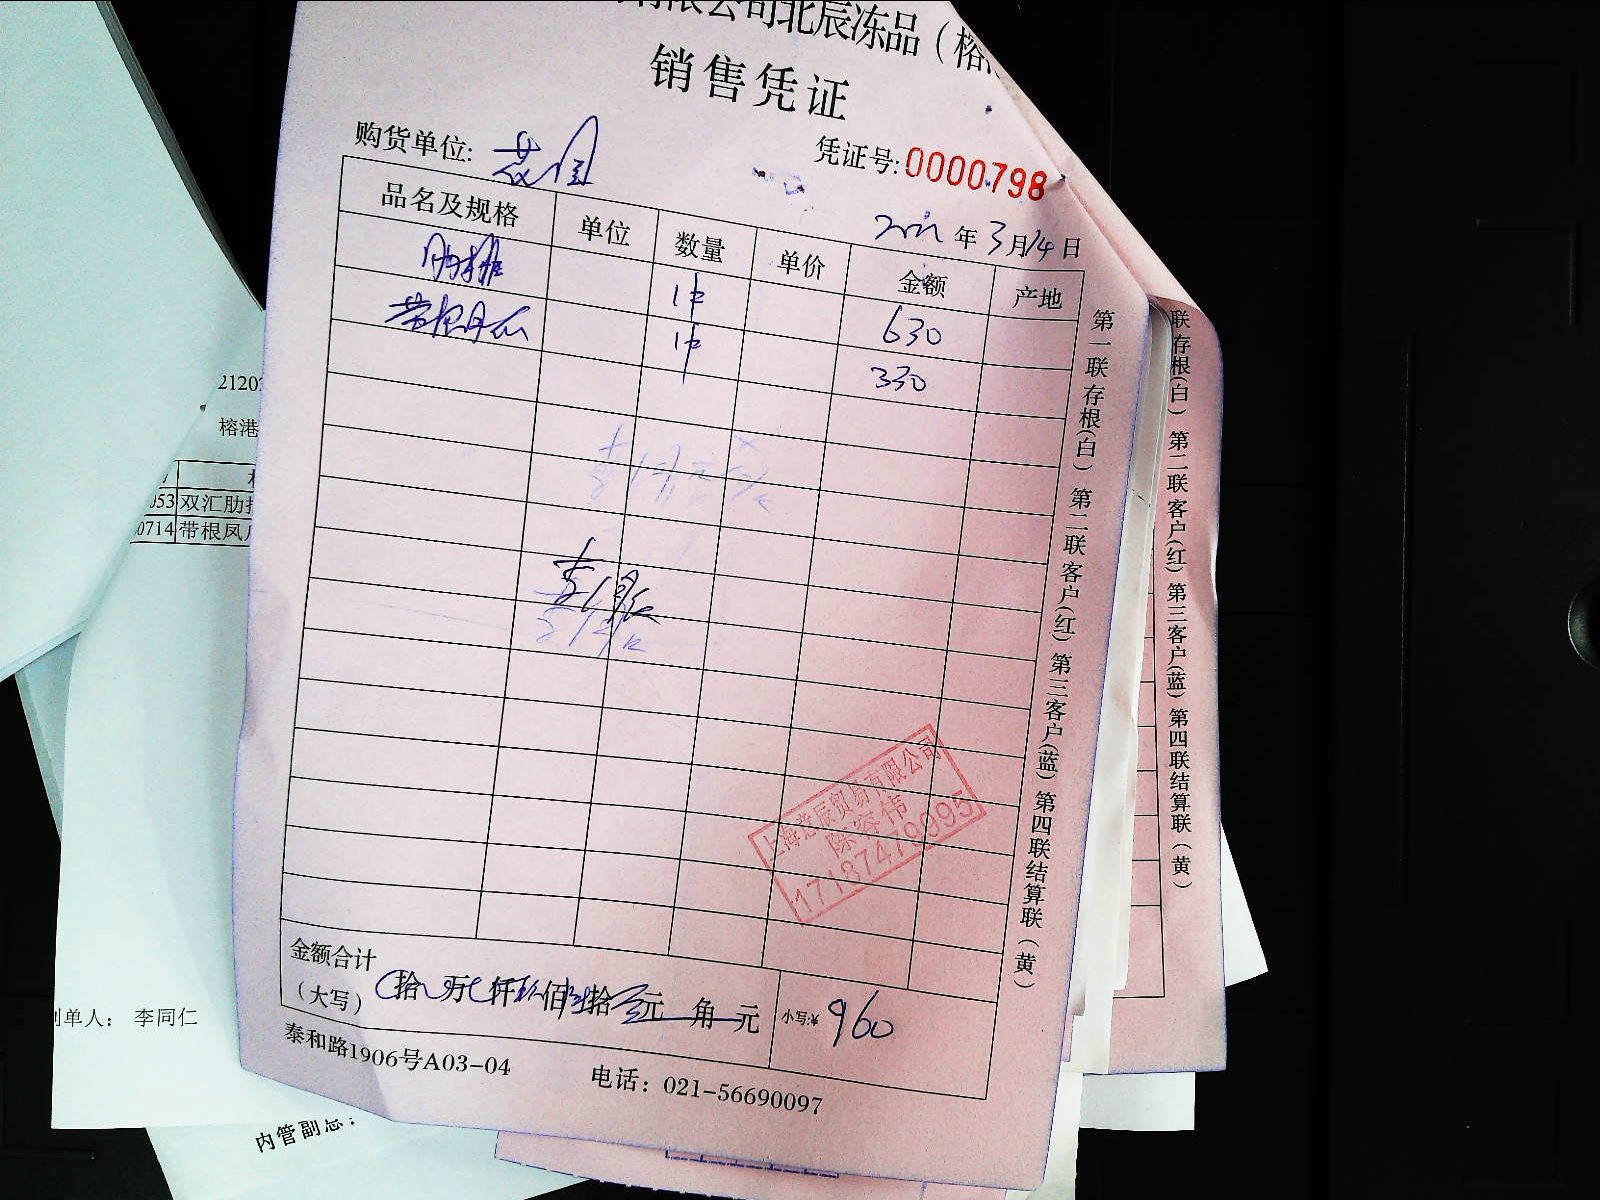 有限公司北辰冻品（榕
销售凭证
购货单位:
凭证号:0000798
年3月14日
品名及规格 单位 数量 单价 金额 产地
肋排 1件 630
带根凤爪 1件 330
第一联存根(白) 第二联客户(红) 第三客户(蓝) 第四联结算联(黄)
联存根(白) 第二联客户(红) 第三客户(蓝) 第四联结算联(黄)
2120
榕港
053 双汇肋排
0714 带根凤
陈容伟
17187479995
金额合计
（大写） 拾 万 仟 佰 拾 元 角 元 小写:¥ 960
泰和路1906号A03-04 电话：021-56690097
制单人： 李同仁
内管副总：